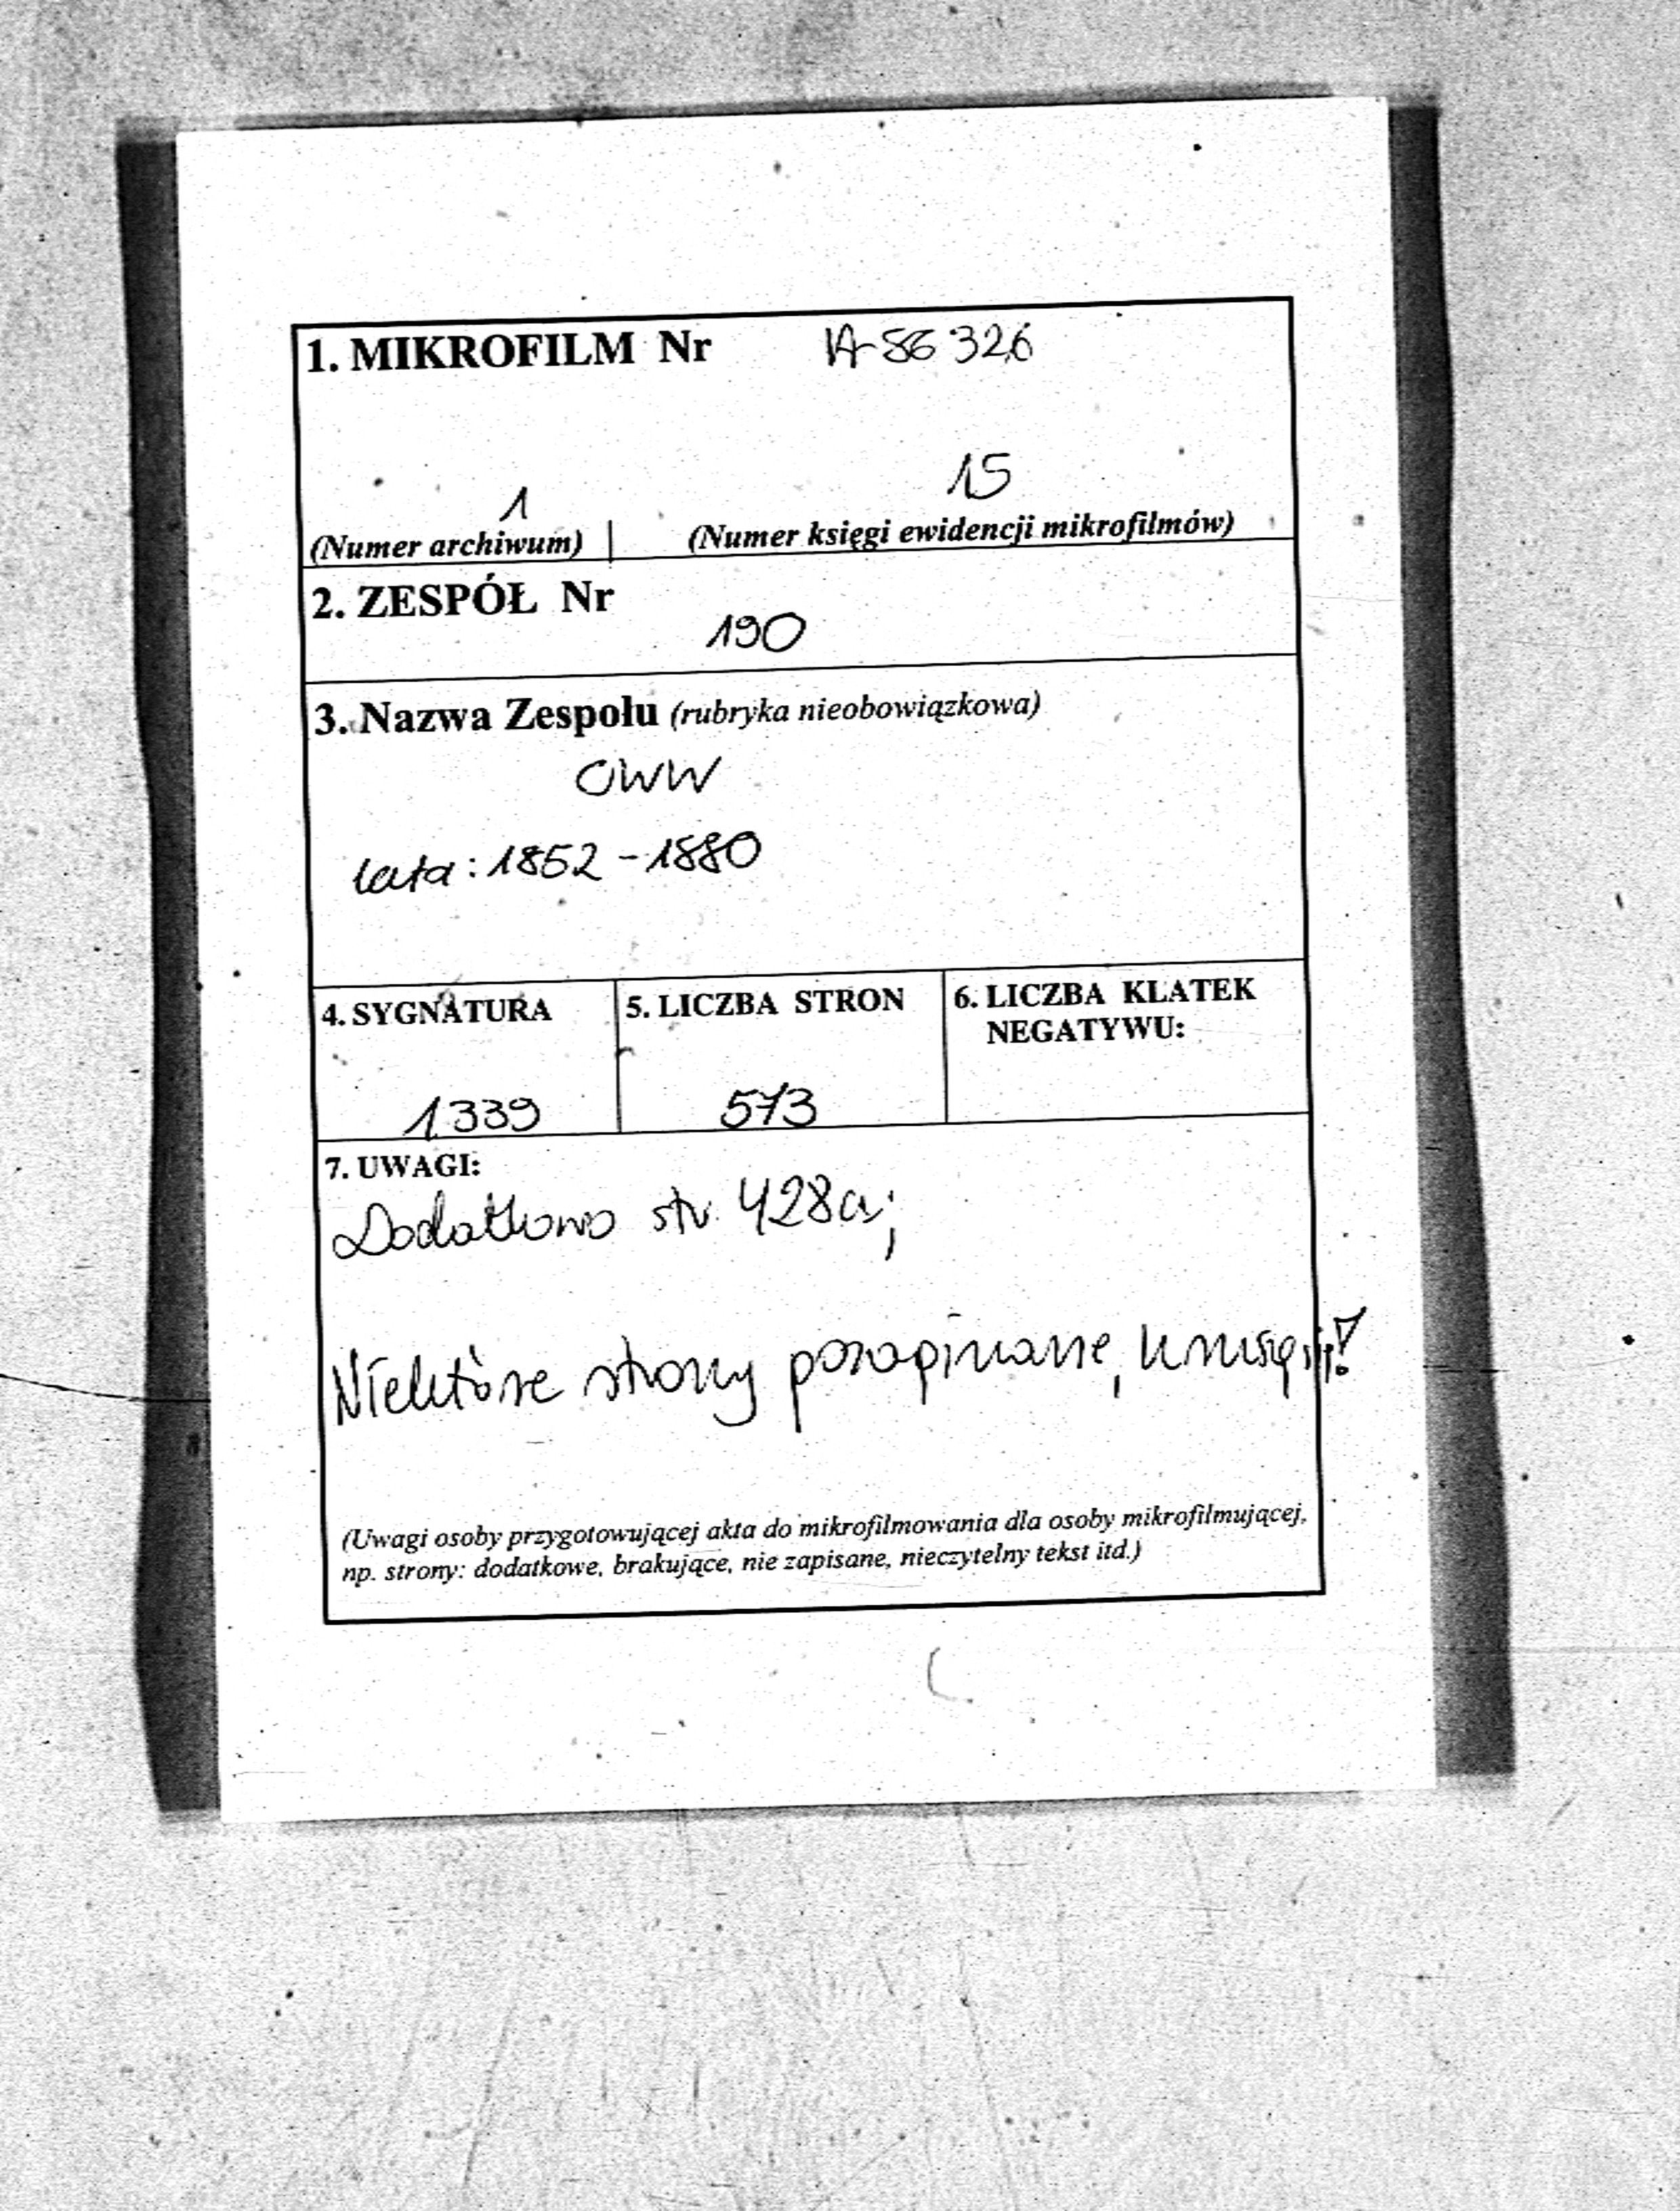 1. MIKROFILM Nr 1A-86 326
1 15
(Numer archiwum) | (Numer księgi ewidencji mikrofilmów)
2. ZESPÓŁ Nr
190
3. Nazwa Zespołu (rubryka nieobowiązkowa)
OWW
lata: 1852 - 1880
4. SYGNATURA 5. LICZBA STRON 6. LICZBA KLATEK
NEGATYWU:
1339 573
7. UWAGI:
Dodatkowo str. 428a;
Niektóre strony pozaginane,
(Uwagi osoby przygotowującej akta do mikrofilmowania dla osoby mikrofilmującej,
np. strony: dodatkowe, brakujące, nie zapisane, nieczytelny tekst itd.)